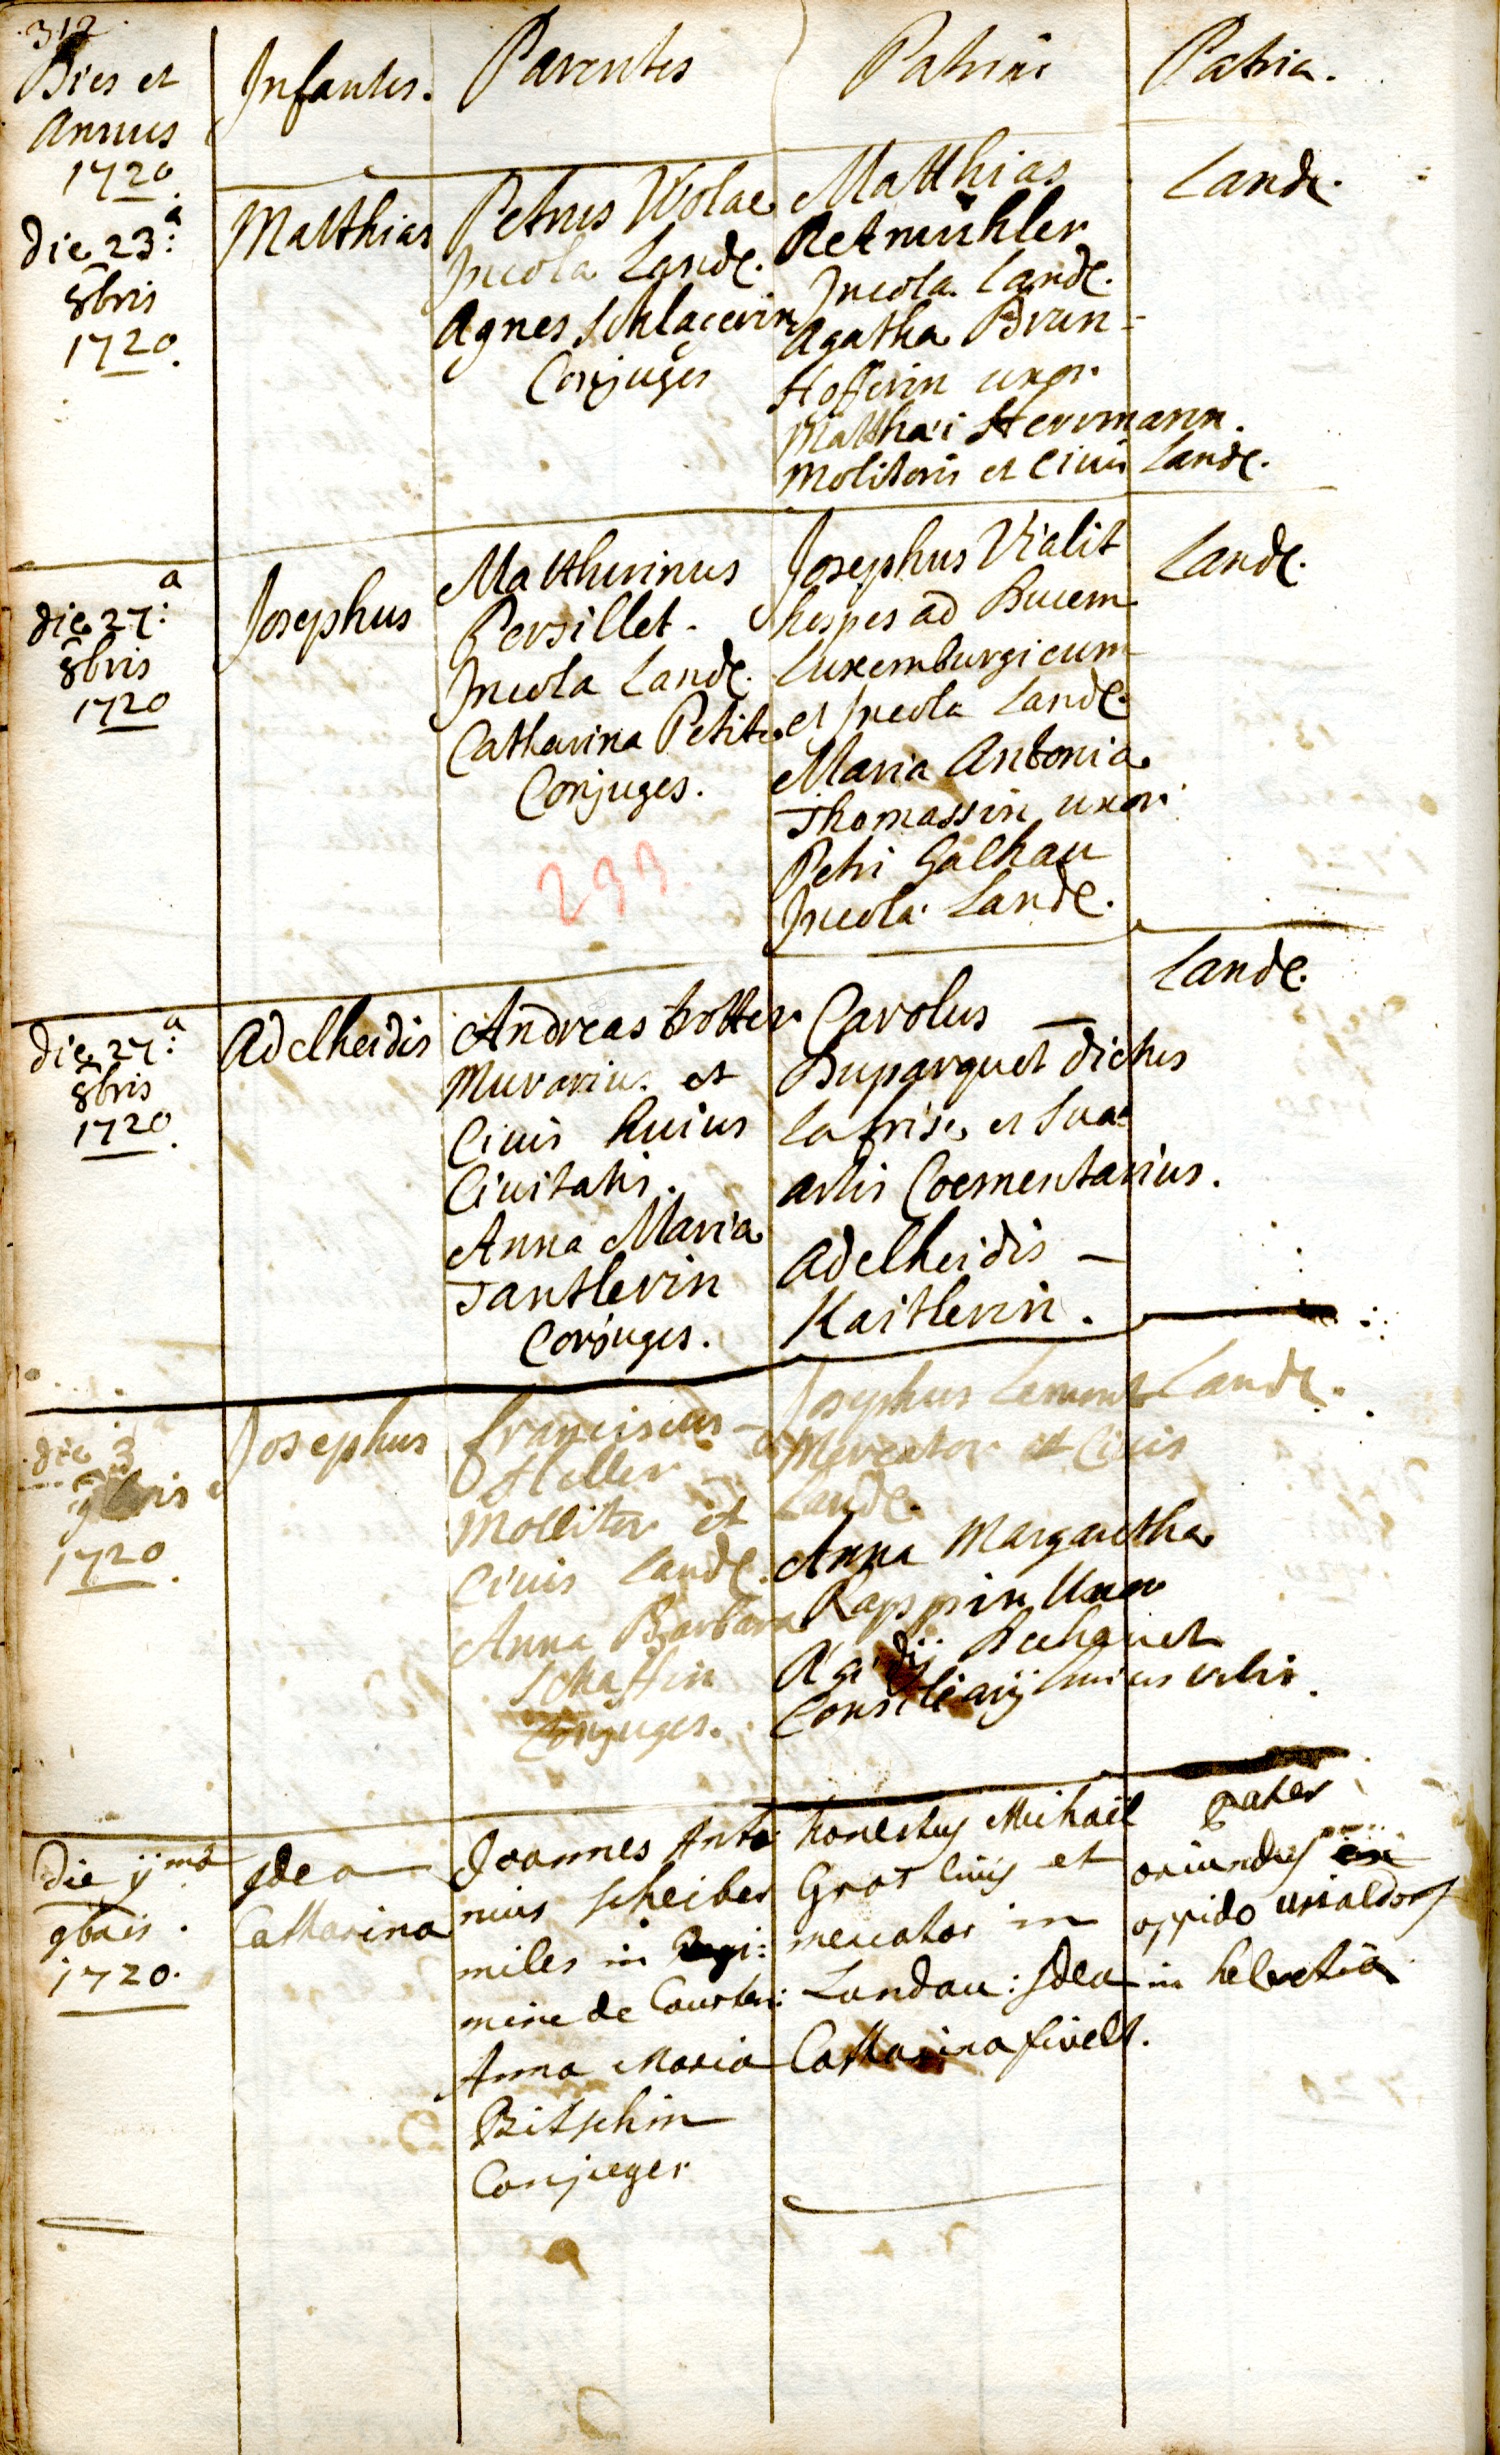 312
Dies et
Annus
1720.
Infantes.
Parentes
Patrini
Patria.
die 23:a
8bris
1720.
Matthias
Petrus Wolae
Incola Lande.
Agnes Schlacerin
Conjuges
Matthias
Retmühler
Incola Lande.
Agatha Brun-
Hofferin uxor
Matthaei Herrmann.
Molitoris et Civis Lande.
Lande.
die 27:a
8bris
1720
Josephus
Matthurinus
Persillet.
Incola Lande.
Catharina Petite
Conjuges.
Josephus Vialit
hospes ad Ducem
Luxemburgicum
et Incola Lande.
Maria Antonia
Thomassin uxor
Petri Galhau
Incola Lande.
Lande.
die 27:a
8bris
1720.
Adelheidis
Andreas trotter
Murarius et
Civis huius
Civitatis.
Anna Maria
Tantlerin
Conjuges.
Carolus
Duparquet dictus
la frise et sua
artis Coementarius.
Adelheidis
Kaitlerin.
Lande.
die 3
9bris
1720.
Josephus
franciscus
Heller
Mollitor et
Civis Lande.
Anna Barbara
Schaffin
Conjuges.
Josephus Lemont
Mercator et Civis
Lande.
Anna Margaretha
Rappin Uxor
Aegidij Bechauet
Consiliarij huius urbis.
Lande.
Die ijma
9bris.
1720.
Idea
Catharina
Joannes Anto
nius Scheiber
miles in Regi:
mine de Courten:
Anna Maria
Bitschin
Conjuges
honestus Michaël
Gros civis et
mercator in
Landau: Idea
Catharina fivelt.
pater
oriundus
oppido
in helvetia